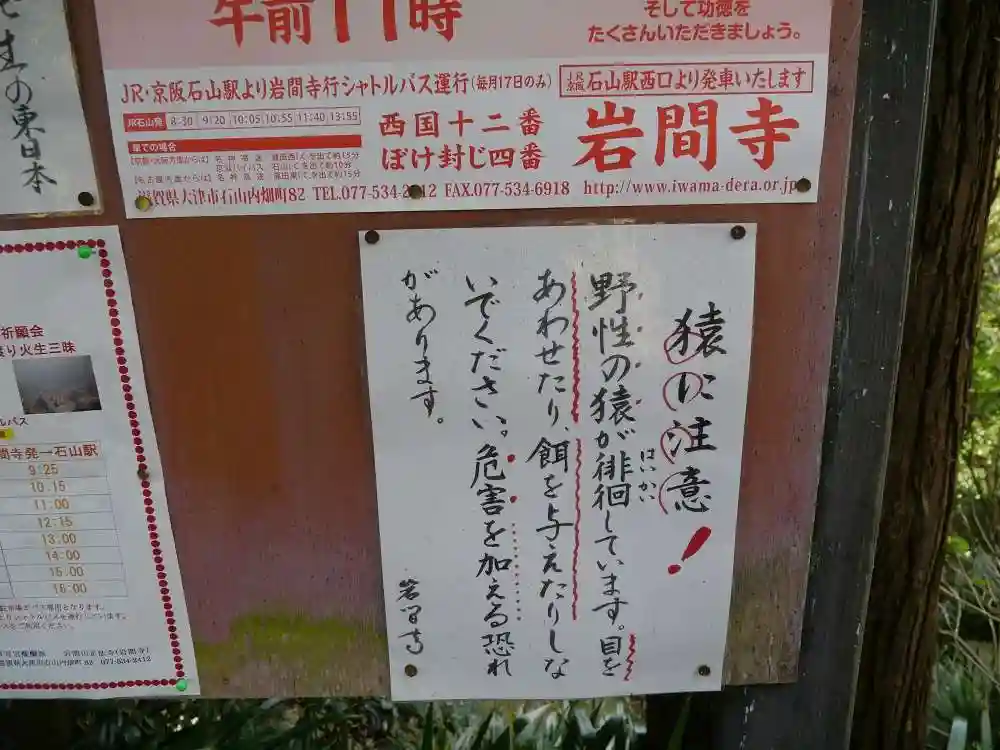 午前11時
そして功徳を
たくさんいただきましょう。
JR・京阪石山駅より岩間寺行シャトルバス運行(毎月17日のみ)
石山駅西口より発車いたします
JR石山発 8:30 9:20 10:05 10:55 11:40 13:55
車での場合
西国十二番
ぼけ封じ四番
岩間寺
滋賀県大津市石山内畑町82 TEL.077-534-2412 FAX.077-534-6918 http://www.iwama-dera.or.jp
生の東日本
猿に注意!
野性の猿が徘徊しています。目を
はいかい
あわせたり、餌を与えたりしな
いでください。危害を加える恐れ
があります。
岩間寺
祈願会
火生三昧
ルバス
間寺発→石山駅
9:25
10:15
11:00
12:15
13:00
14:00
15:00
16:00